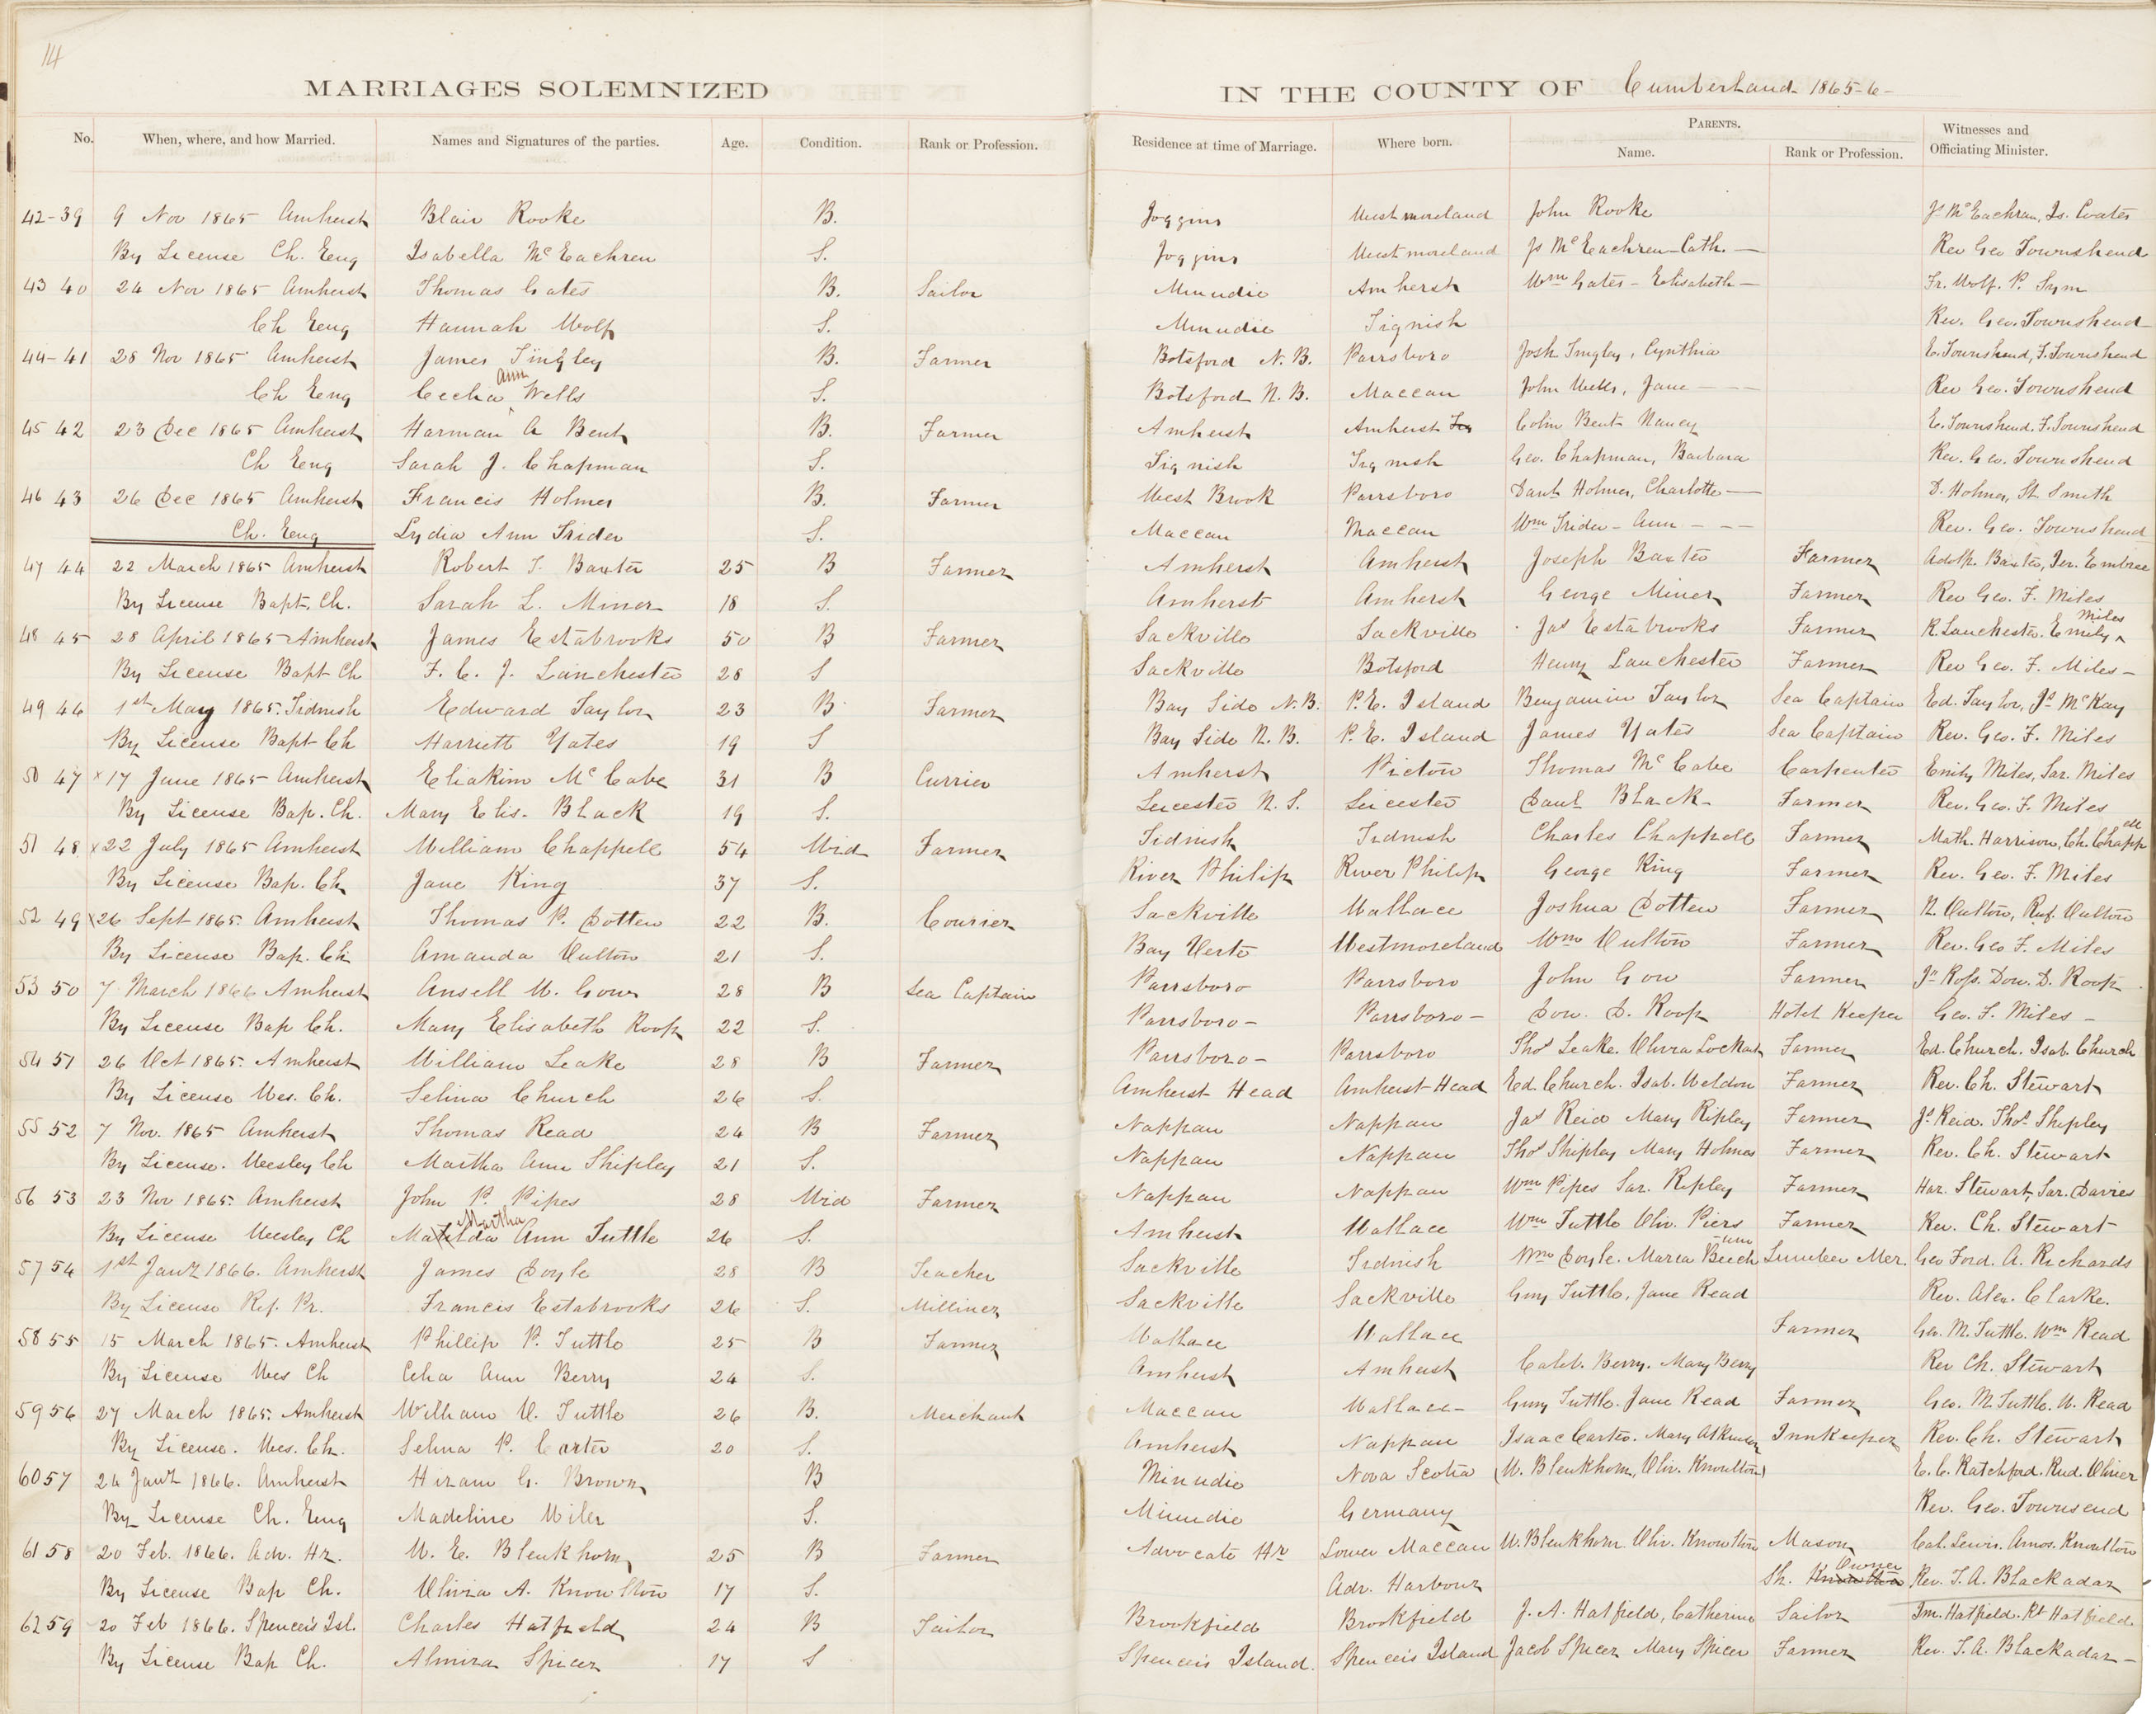 14
MARRIAGES SOLEMNIZED IN THE COUNTY OF Cumberland 1865-6-
No. When, where, and how Married. Names and Signatures of the parties. Age. Condition. Rank or Profession. Residence at time of Marriage. Where born. PARENTS. Name. Rank or Profession. Witnesses and Officiating Minister.
42-39 9 Nov 1865 Amherst Blair Rooke B. Joggins Westmoreland John Rooke Js McEachran, Is. Coates
By License Ch. Eeng Isabella McEachren S. Joggins Westmoreland Js McEachren - Cath. — Rev Geo Townshend
43 40 24 Nov 1865 Amherst Thomas Gates B. Sailor Minudie Amherst Wm Gates - Elisabeth — Fr. Wolf. P. Sym
Ch Eeng Hannah Wolf S. Minudie Tignish Rev. Geo. Townshend
44-41 28 Nov 1865 Amherst James Tingley B. Farmer Botsford N.B. Parrsboro Josh Tingley, Cynthia E. Townshend, F. Townshend
Ch Eeng Cecelia Ann Wells S. Botsford N.B. Maccan John Wells, Jane — Rev Geo. Townshend
45 42 23 Dec 1865 Amherst Harman A Bent B. Farmer Amherst Amherst Colin Bent Nancy E. Townshend. F. Townshend
Ch Eeng Sarah J. Chapman S. Tignish Tignish Geo. Chapman, Barbara Rev. Geo. Townshend
46 43 26 Dec 1865 Amherst Francis Holmes B. Farmer West Brook Parrsboro Danl Holmes, Charlotte — D. Holmes, St. Smith
Ch. Eeng Lydia Ann Trider S. Maccan Maccan Wm Trider - Ann - - - Rev. Geo. Townshend
47 44 22 March 1865 Amherst Robert T. Baxter 25 B Farmer Amherst Amherst Joseph Baxter Farmer Adolp. Baxter, Jer. Embree
By License Bapt. Ch. Sarah L. Miner 18 S. Amherst Amherst George Miner Farmer Rev Geo. F. Miles
48 45 28 April 1865 Amherst James Estabrooks 50 B Farmer Sackville Sackville Jas Estabrooks Farmer R. Lanchester. Emily Miles
By License Bapt Ch F. C. J. Lanchester 28 S Sackville Botsford Henry Lanchester Farmer Rev Geo. F. Miles -
49 46 1st May 1865. Tidnish Edward Taylor 23 B Farmer Bay Side N.B. P.E. Island Benjamin Taylor Sea Captain Ed. Taylor, Js McKay
By License Bapt Ch Harriett Yates 19 S Bay Side N.B. P.E. Island James Yates Sea Captain Rev. Geo. F. Miles
50 47 x 17 June 1865 Amherst Eliakim McCabe 31 B Currier Amherst Pictou Thomas McCabe Carpenter Emily Miles, Sar. Miles
By License Bap. Ch. Mary Elis. Black 19 S. Leicester N.S. Leicester Danl Black Farmer Rev. Geo. F. Miles
51 48 x 22 July 1865 Amherst William Chappell 54 Wid Farmer Tidnish Tidnish Charles Chappell Farmer Math. Harrison, Ch. Chappell
By License Bap. Ch Jane King 37 S. River Philip River Philip George King Farmer Rev. Geo. F. Miles
52 49 x 26 Sept 1865. Amherst Thomas P. Dotten 22 B. Courier Sackville Wallace Joshua Dotten Farmer N. Oulton, Ruf. Oulton
By License Bap. Ch Amanda Oulton 21 S. Bay Verte Westmoreland Wm Oulton Farmer Rev. Geo F. Miles
53 50 7 March 1866 Amherst Ansell W. Gow 28 B Sea Captain Parrsboro Parrsboro John Gow Farmer Jn Ross. Dow. D. Roop
By License Bap Ch. Mary Elisabeth Roop 22 S. Parrsboro - Parrsboro - Dow. D. Roop Hotel Keeper Geo. F. Miles -
54 51 26 Oct 1865. Amherst William Leake 28 B Farmer Parrsboro - Parrsboro Thos Leake. Olivia Lockart Farmer Ed. Church. Isab. Church
By License Wes. Ch. Selina Church 26 S. Amherst Head Amherst Head Ed. Church. Isab. Weldon Farmer Rev. Ch. Stewart
55 52 7 Nov. 1865 Amherst Thomas Read 24 B Farmer Nappan Nappan Jas Reid Mary Ripley Farmer Js. Reid. Thos. Shipley
By License. Wesley Ch Martha Ann Shipley 21 S. Nappan Nappan Thos Shipley Mary Holmes Farmer Rev. Ch. Stewart
56 53 23 Nov 1865. Amherst John P. Pipes 28 Wid Farmer Nappan Nappan Wm Pipes Sar. Ripley Farmer Har. Stewart, Sar. Davies
By License Wesley Ch Matilda Martha Ann Tuttle 26 S. Amherst Wallace Wm Tuttle Oliv. Piers Farmer Rev. Ch. Stewart
57 54 1st Jany 1866. Amherst James Doyle 28 B Teacher Sackville Tidnish Wm Doyle. Maria Beech Lumber Mer. Geo Ford. A. Richards
By License Ref. Pr. Francis Estabrooks 26 S. Milliner Sackville Sackville Guy Tuttle, Jane Read Rev. Alex. Clarke.
58 55 15 March 1865. Amherst Phillip P. Tuttle 25 B Farmer Wallace Wallace Farmer Geo. M. Tuttle. Wm Read
By License Wes Ch Celia Ann Berry 24 S. Amherst Amherst Caleb. Berry. Mary Berry Rev Ch. Stewart
59 56 27 March 1865. Amherst William O. Tuttle 26 B. Merchant Maccan Wallace - Guy Tuttle. Jane Read Farmer Geo. M. Tuttle. W. Read
By License. Wes. Ch. Selina P. Carter 20 S. Amherst Nappan Isaac Carter. Mary Atkinson Innkeeper Rev. Ch. Stewart
60 57 24 Jany 1866. Amherst Hiram G. Brown B Minudie Nova Scotia (W. Blenkhorn, Oliv. Knowlton) E. C. Ratchford. Rud. Oliver
By License Ch. Eeng Madeline Miler S. Minudie Germany Rev. Geo. Townsend
61 58 20 Feb. 1866. Adv. Hr. W. E. Blenkhorn 25 B Farmer Advocate Hr Lower Maccan W. Blenkhorn Oliv. Knowlton Mason Cal. Lewis. Amos. Knowlton
By License Bap Ch. Olivia A. Knowlton 17 S. Adv. Harbour Sh. Knowlton Owner Rev. T. A. Blackadar
62 59 20 Feb 1866. Spencer's Isl. Charles Hatfield 24 B Sailor Brookfield Brookfield J. A. Hatfield, Catherine Sailor Im. Hatfield. Rt Hatfield
By License Bap Ch. Almira Spicer 17 S Spencer's Island. Spencer's Island Jacob Spicer Mary Spicer Farmer Rev. T. A. Blackadar -